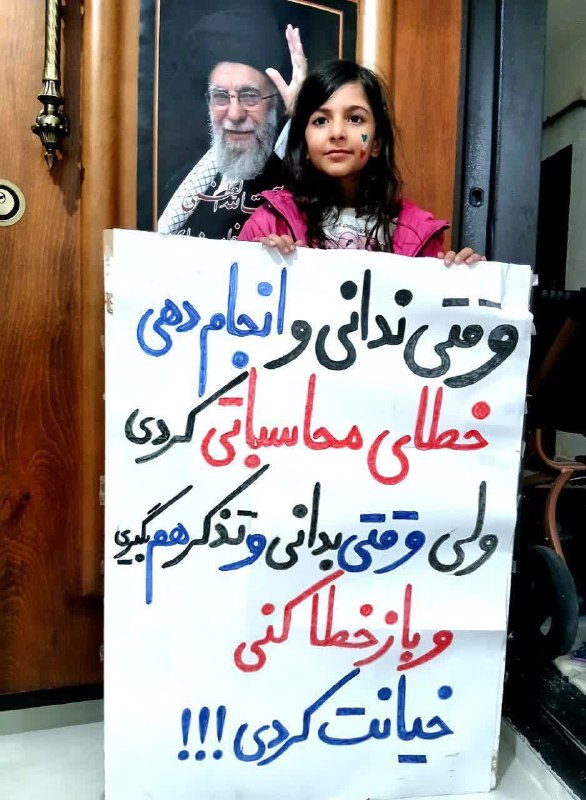 وقتی ندانی و انجام دهی
خطای محاسباتی کردی
ولی وقتی بدانی و تذکر هم بگیری
و باز خطا کنی
خیانت کردی !!!